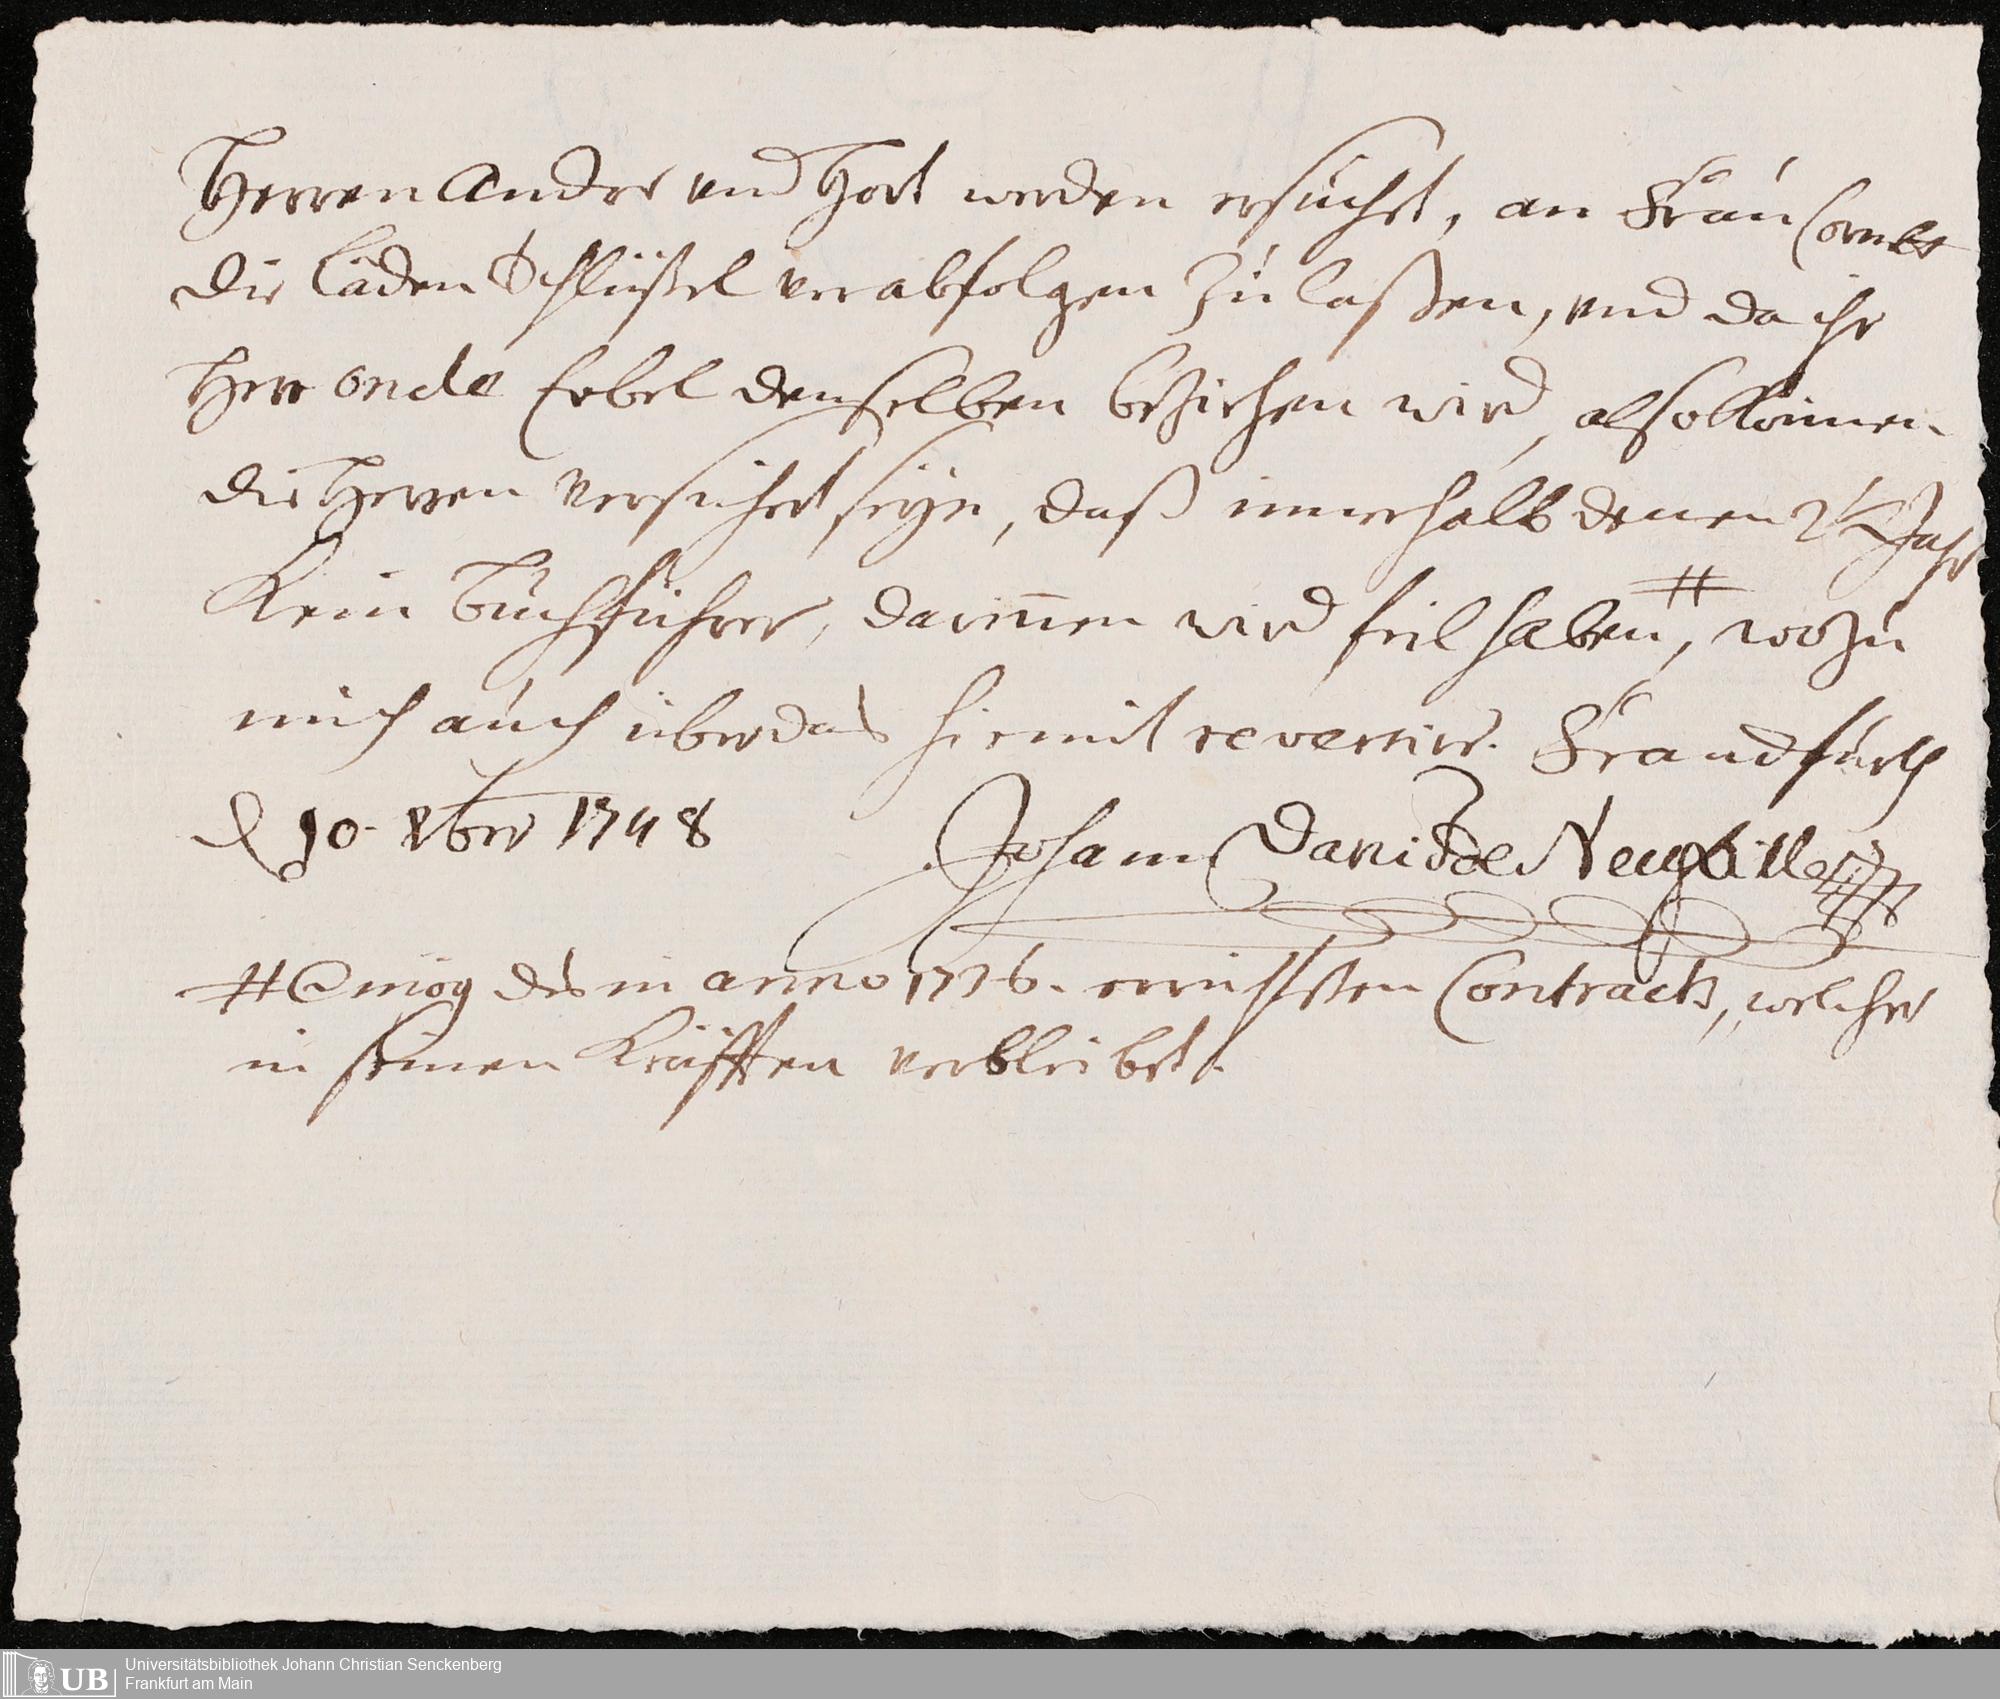 Herren Andre und Hort werden ersucht, an Frau
die Läden Schlüßel verabfolgen zu laßen, und da ihr
Herr oncle Erbel denselben beziehen wird, also können
die Herren versichert seyn, daß innerhalb denen 2 1/2 Jahr
Kein Buchführer, darinnen wird feil haben #, wozu
mich auch überdas hiemit reversire. Franckfurth
d 10. 8bre 1748
Johann David de Neufville
# @ mög des in anno 1736. errichteten Contracts, welcher
in seinen Kräfften verbleibet.
UB
Universitätsbibliothek Johann Christian Senckenberg
Frankfurt am Main